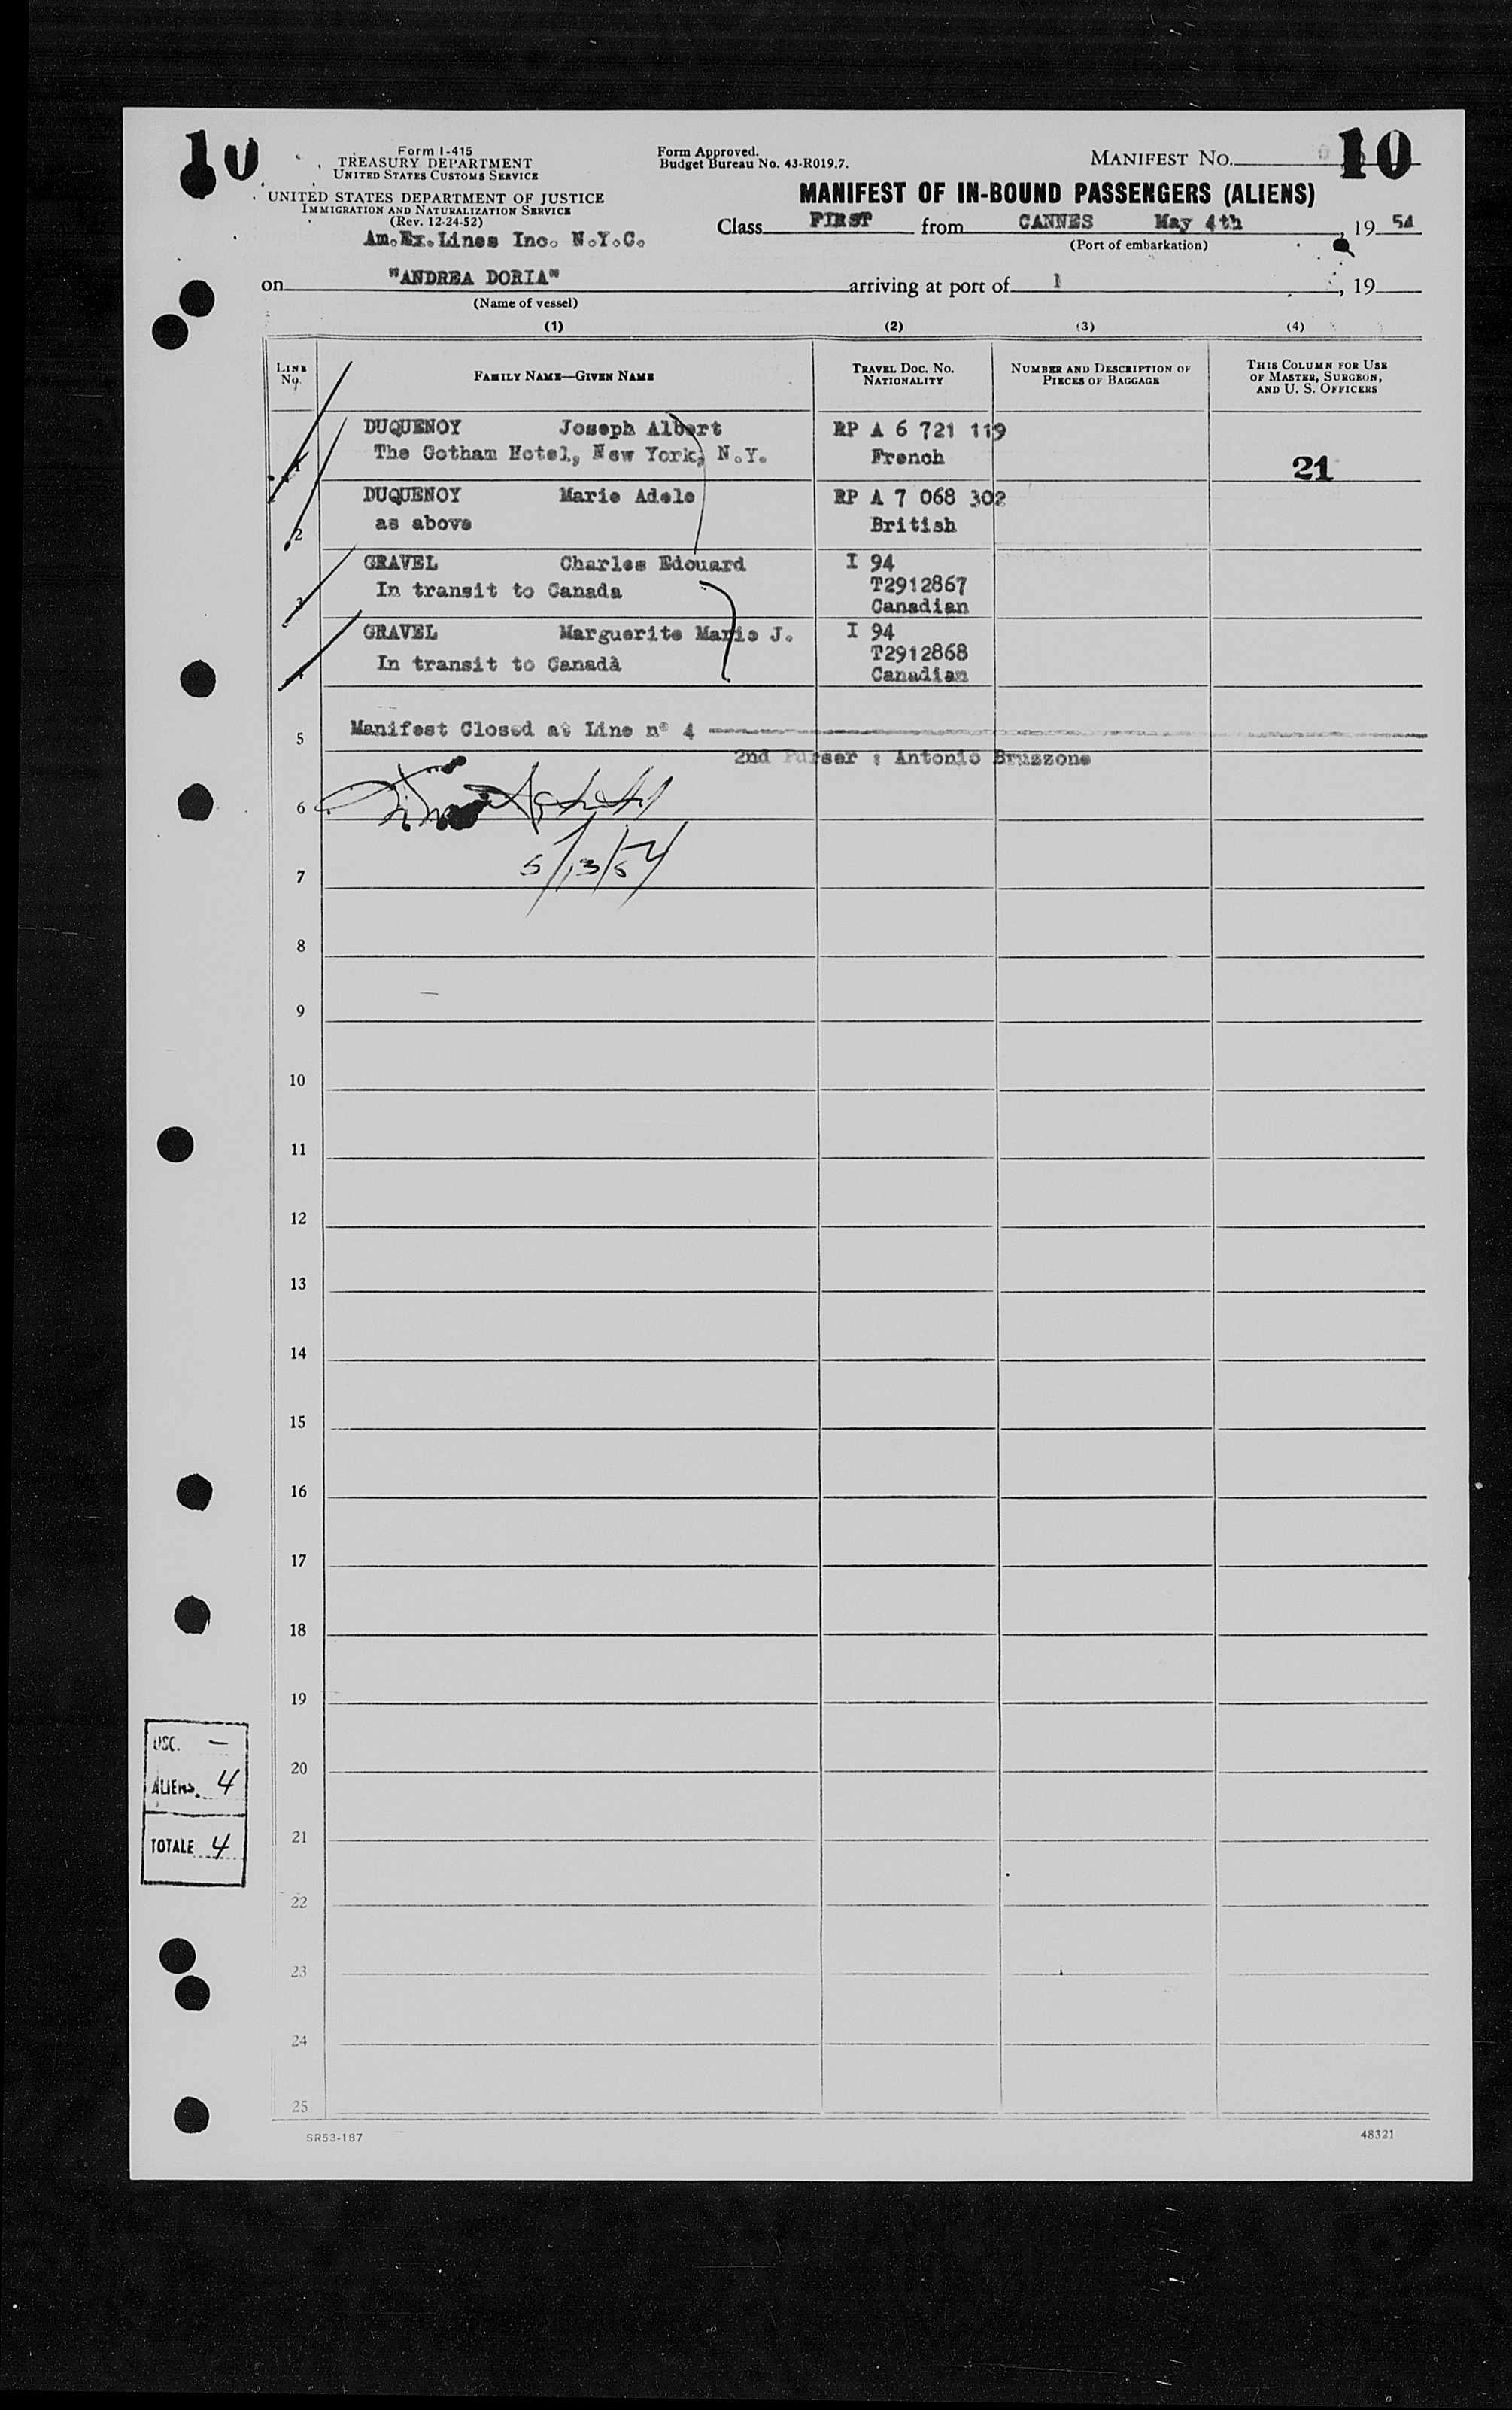 10
Form I-415
TREASURY DEPARTMENT
UNITED STATES CUSTOMS SERVICE
UNITED STATES DEPARTMENT OF JUSTICE
IMMIGRATION AND NATURALIZATION SERVICE
(Rev. 12-24-52)
Am.Ex.Lines Inc. N.Y.C.
Form Approved.
Budget Bureau No. 43-R019.7.
MANIFEST NO. 10
MANIFEST OF IN-BOUND PASSENGERS (ALIENS)
Class FIRST from CANNES May 4th, 19 54
(Port of embarkation)
on "ANDREA DORIA" arriving at port of 1, 19
(Name of vessel)
(1) (2) (3) (4)
LINE No. FAMILY NAME—GIVEN NAME TRAVEL DOC. NO. NATIONALITY NUMBER AND DESCRIPTION OF PIECES OF BAGGAGE THIS COLUMN FOR USE OF MASTER, SURGEON, AND U. S. OFFICERS
1 DUQUENOY Joseph Albert RP A 6 721 119
The Gotham Hotel, New York, N.Y. French 21
2 DUQUENOY Marie Adele RP A 7 068 302
as above British
3 GRAVEL Charles Edouard I 94
In transit to Canada T2912867
Canadian
4 GRAVEL Marguerite Marie J. I 94
In transit to Canada T2912868
Canadian
5 Manifest Closed at Line n° 4
2nd Purser : Antonio Bruzzone
6
5/13/54
7
8
9
10
11
12
13
14
15
16
17
18
19
USC. —
20
ALIENS. 4
21
TOTALE 4
22
23
24
25
SR53-187 48321